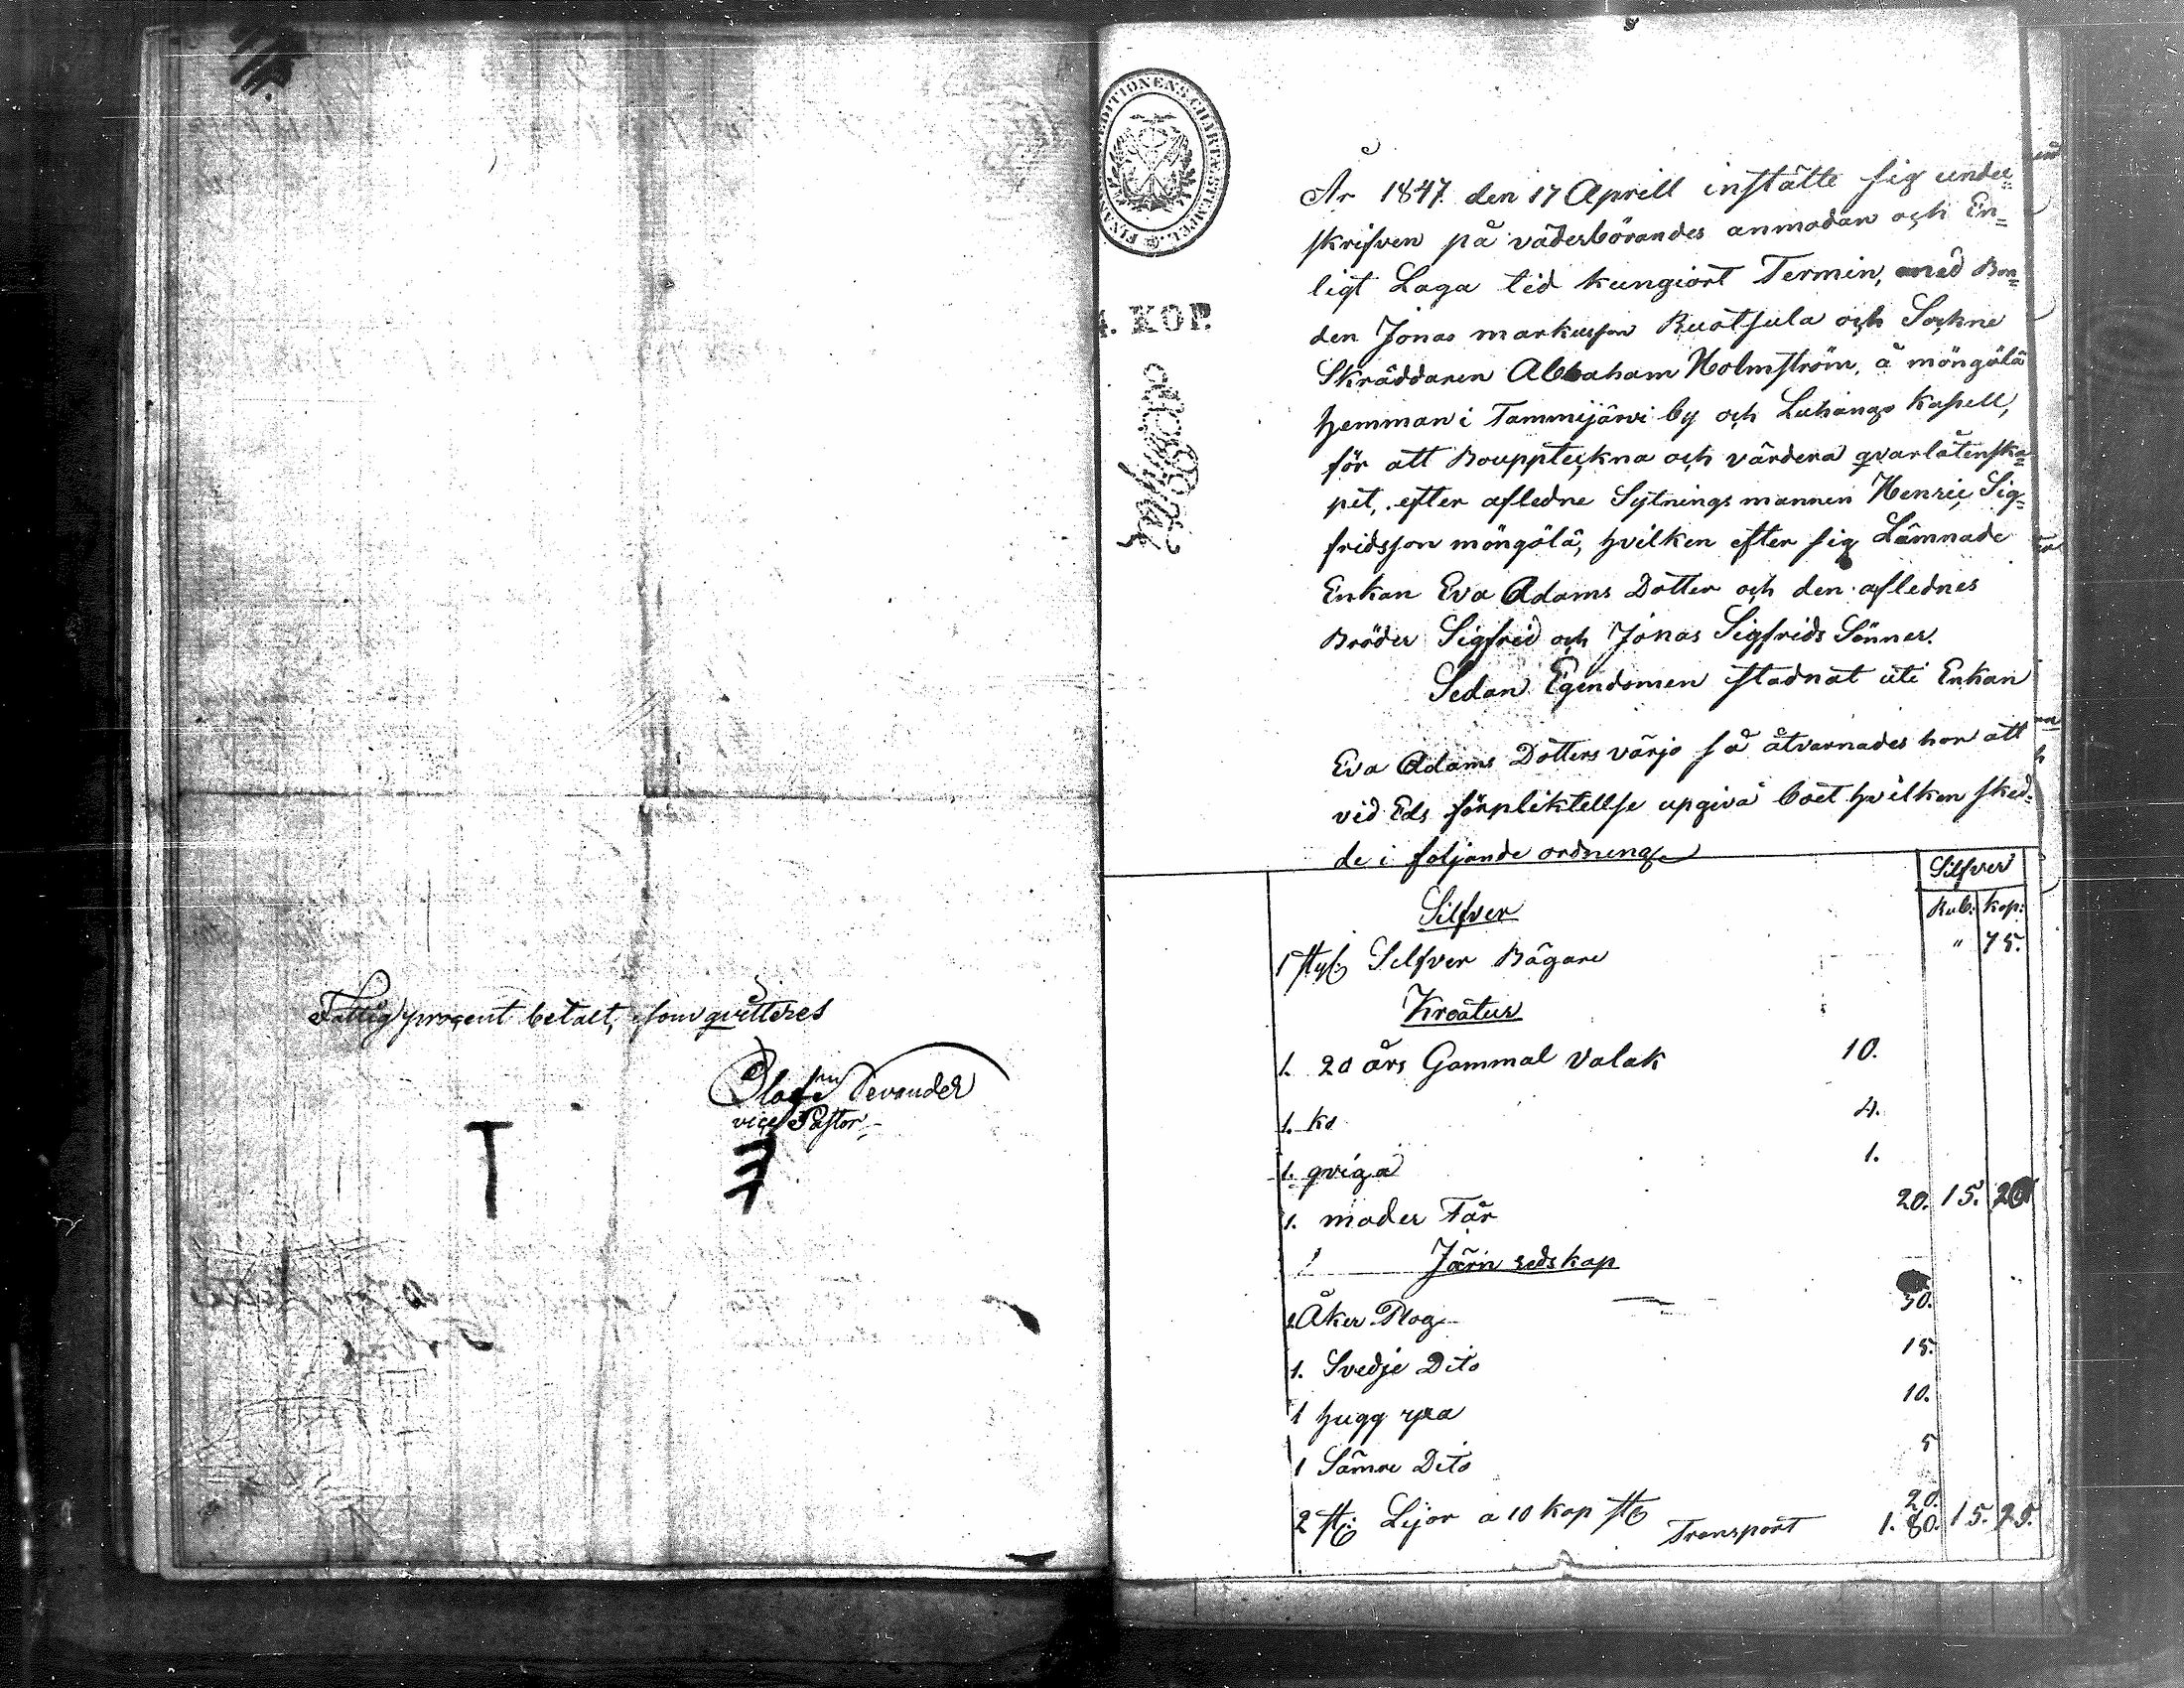 Fattig procent betalt, som qvitteres
Olof Sevander
vice Pastor
FINANS EXPEDITIONENS CHARTÆ STEMPEL
4. KOP.
År 1847. den 17 Aprill instälte sig under=
skrifven på väderbörandes anmodan och En=
ligt Laga tid kungiort Termin, med Bon=
den Jonas markusson Ruotsula och Sockne
Skräddaren Abraham Holmström, å möngölä
hemman i Tammijärvi by och Luhango Kapell,
för att Bouppteckna och värdera qvarlåtenska=
pet, efter afledne Sytnings mannen Henric Sig=
fridsson möngölä, hvilken efter sig Lämnade
Enkan Eva Adams Dotter och den aflednes
Bröder Sigfrid och Jonas Sigfrids Sönner.
Sedan Egendomen stadnat uti Enkan
Eva Adams Dotters värjo så åtvarnades hon att
vid Eds förpliktellse upgiva boet hvilken sked=
de i foljande ordning
Silfver
Rub: Kop:
Silfver
1 Silfver Bägare " 75.
Kreatur
1. 20 års Gammal Valak 10.
1. ko 4.
1. qviga 1.
1. moder Får 20. 15. 20
Järn redskap
1 Åker Plog 30.
1. Svedje Dito 15.
1 hugg yxa 10.
1 Sämre Dito 5
2 st: Lijor a 10 kop st 20.
Transport 1. 80. 15. 95.